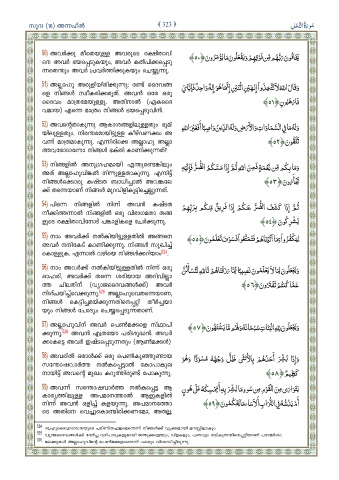 സൂറ: (16) അന്നഹ്ൽ ﴾ 323 ﴿ سُورَةُ النَّحْل
50) അവർക്കു മീതെയുള്ള അവരുടെ രക്ഷിതാവി
നെ അവർ ഭയപ്പെടുകയും, അവർ കൽപിക്കപ്പെടു
ന്നതെന്തും അവർ പ്രവർത്തിക്കുകയും ചെയ്യുന്നു.
يَخَافُونَ رَبَّهُم مِّن فَوْقِهِمْ وَيَفْعَلُونَ مَا يُؤْمَرُونَ ﴿٥٠﴾
51) അല്ലാഹു അരുളിയിരിക്കുന്നു: രണ്ട് ദൈവങ്ങ
ളെ നിങ്ങൾ സ്വീകരിക്കരുത്. അവൻ ഒരേ ഒരു
ദൈവം മാത്രമേയുള്ളൂ. അതിനാൽ (ഏകദൈ
വമായ) എന്നെ മാത്രം നിങ്ങൾ ഭയപ്പെടുവിൻ.
وَقَالَ اللَّهُ لَا تَتَّخِذُوا إِلَٰهَيْنِ اثْنَيْنِ إِنَّمَا هُوَ إِلَٰهٌ وَاحِدٌ فَإِيَّايَ
فَارْهَبُونِ ﴿٥١﴾
52) അവന്റേതാകുന്നു ആകാശങ്ങളിലുള്ളതും ഭൂമി
യിലുള്ളതും. നിരന്തരമായിട്ടുള്ള കീഴ്‌വണക്കം അ
വന്ന് മാത്രമാകുന്നു. എന്നിരിക്കെ അല്ലാഹു അല്ലാ
ത്തവരോടാണോ നിങ്ങൾ ഭക്തി കാണിക്കുന്നത്?
وَلَهُ مَا فِي السَّمَاوَاتِ وَالْأَرْضِ وَلَهُ الدِّينُ وَاصِبًا أَفَغَيْرَ اللَّهِ
تَتَّقُونَ ﴿٥٢﴾
53) നിങ്ങളിൽ അനുഗ്രഹമായി എന്തുണ്ടെങ്കിലും
അത് അല്ലാഹുവിങ്കൽ നിന്നുള്ളതാകുന്നു. എന്നിട്ട്
നിങ്ങൾക്കൊരു കഷ്ടത ബാധിച്ചാൽ അവങ്കലേ
ക്ക് തന്നെയാണ് നിങ്ങൾ മുറവിളികൂട്ടിച്ചെല്ലുന്നത്.
وَمَا بِكُم مِّن نِّعْمَةٍ فَمِنَ اللَّهِ ثُمَّ إِذَا مَسَّكُمُ الضُّرُّ فَإِلَيْهِ
تَجْأَرُونَ ﴿٥٣﴾
54) പിന്നെ നിങ്ങളിൽ നിന്ന് അവൻ കഷ്ടത
നീക്കിത്തന്നാൽ നിങ്ങളിൽ ഒരു വിഭാഗമതാ തങ്ങ
ളുടെ രക്ഷിതാവിനോട് പങ്കാളികളെ ചേർക്കുന്നു.
ثُمَّ إِذَا كَشَفَ الضُّرَّ عَنكُمْ إِذَا فَرِيقٌ مِّنكُم بِرَبِّهِمْ
يُشْرِكُونَ ﴿٥٤﴾
55) നാം അവർക്ക് നൽകിയിട്ടുള്ളതിൽ അങ്ങനെ
അവർ നന്ദികേട് കാണിക്കുന്നു. നിങ്ങൾ സുഖിച്ച്
കൊള്ളുക. എന്നാൽ വഴിയെ നിങ്ങൾക്കറിയാം.
لِيَكْفُرُوا بِمَا آتَيْنَاهُمْ فَتَمَتَّعُوا فَسَوْفَ تَعْلَمُونَ ﴿٥٥﴾
56) നാം അവർക്ക് നൽകിയിട്ടുള്ളതിൽ നിന്ന് ഒരു
ഓഹരി, അവർക്ക് തന്നെ ശരിയായ അറിവില്ലാ
ത്ത ചിലതിന് (വ്യാജദൈവങ്ങൾക്ക്) അവർ
നിശ്ചയിച്ച്‌വെക്കുന്നു. അല്ലാഹുവെതന്നെയാണെ,
നിങ്ങൾ കെട്ടിച്ചമയ്ക്കുന്നതിനെപ്പറ്റി തീർച്ചയാ
യും നിങ്ങൾ ചോദ്യം ചെയ്യപ്പെടുന്നതാണ്.
وَيَجْعَلُونَ لِمَا لَا يَعْلَمُونَ نَصِيبًا مِّمَّا رَزَقْنَاهُمْ تَاللَّهِ لَتُسْأَلُنَّ
عَمَّا كُنتُمْ تَفْتَرُونَ ﴿٥٦﴾
57) അല്ലാഹുവിന് അവർ പെൺമക്കളെ സ്ഥാപി
ക്കുന്നു. അവൻ എത്രയോ പരിശുദ്ധൻ. അവർ
ക്കാകട്ടെ അവർ ഇഷ്ടപ്പെടുന്നതും (ആൺമക്കൾ)
وَيَجْعَلُونَ لِلَّهِ الْبَنَاتِ سُبْحَانَهُ وَلَهُم مَّا يَشْتَهُونَ ﴿٥٧﴾
58) അവരിൽ ഒരാൾക്ക് ഒരു പെൺകുഞ്ഞുണ്ടായ
സന്തോഷവാർത്ത നൽകപ്പെട്ടാൽ കോപാകുല
നായിട്ട് അവന്റെ മുഖം കറുത്തിരുണ്ട് പോകുന്നു.
وَإِذَا بُشِّرَ أَحَدُهُم بِالْأُنثَىٰ ظَلَّ وَجْهُهُ مُسْوَدًّا وَهُوَ
كَظِيمٌ ﴿٥٨﴾
59) അവന്ന് സന്തോഷവാർത്ത നൽകപ്പെട്ട ആ
കാര്യത്തിലുള്ള അപമാനത്താൽ ആളുകളിൽ
നിന്ന് അവൻ ഒളിച്ച് കളയുന്നു. അപമാനത്തോ
ടെ അതിനെ വെച്ചുകൊണ്ടിരിക്കണമോ, അതല്ല,
يَتَوَارَىٰ مِنَ الْقَوْمِ مِن سُوءِ مَا بُشِّرَ بِهِ أَيُمْسِكُهُ عَلَىٰ هُونٍ
أَمْ يَدُسُّهُ فِي التُّرَابِ أَلَا سَاءَ مَا يَحْكُمُونَ ﴿٥٩﴾